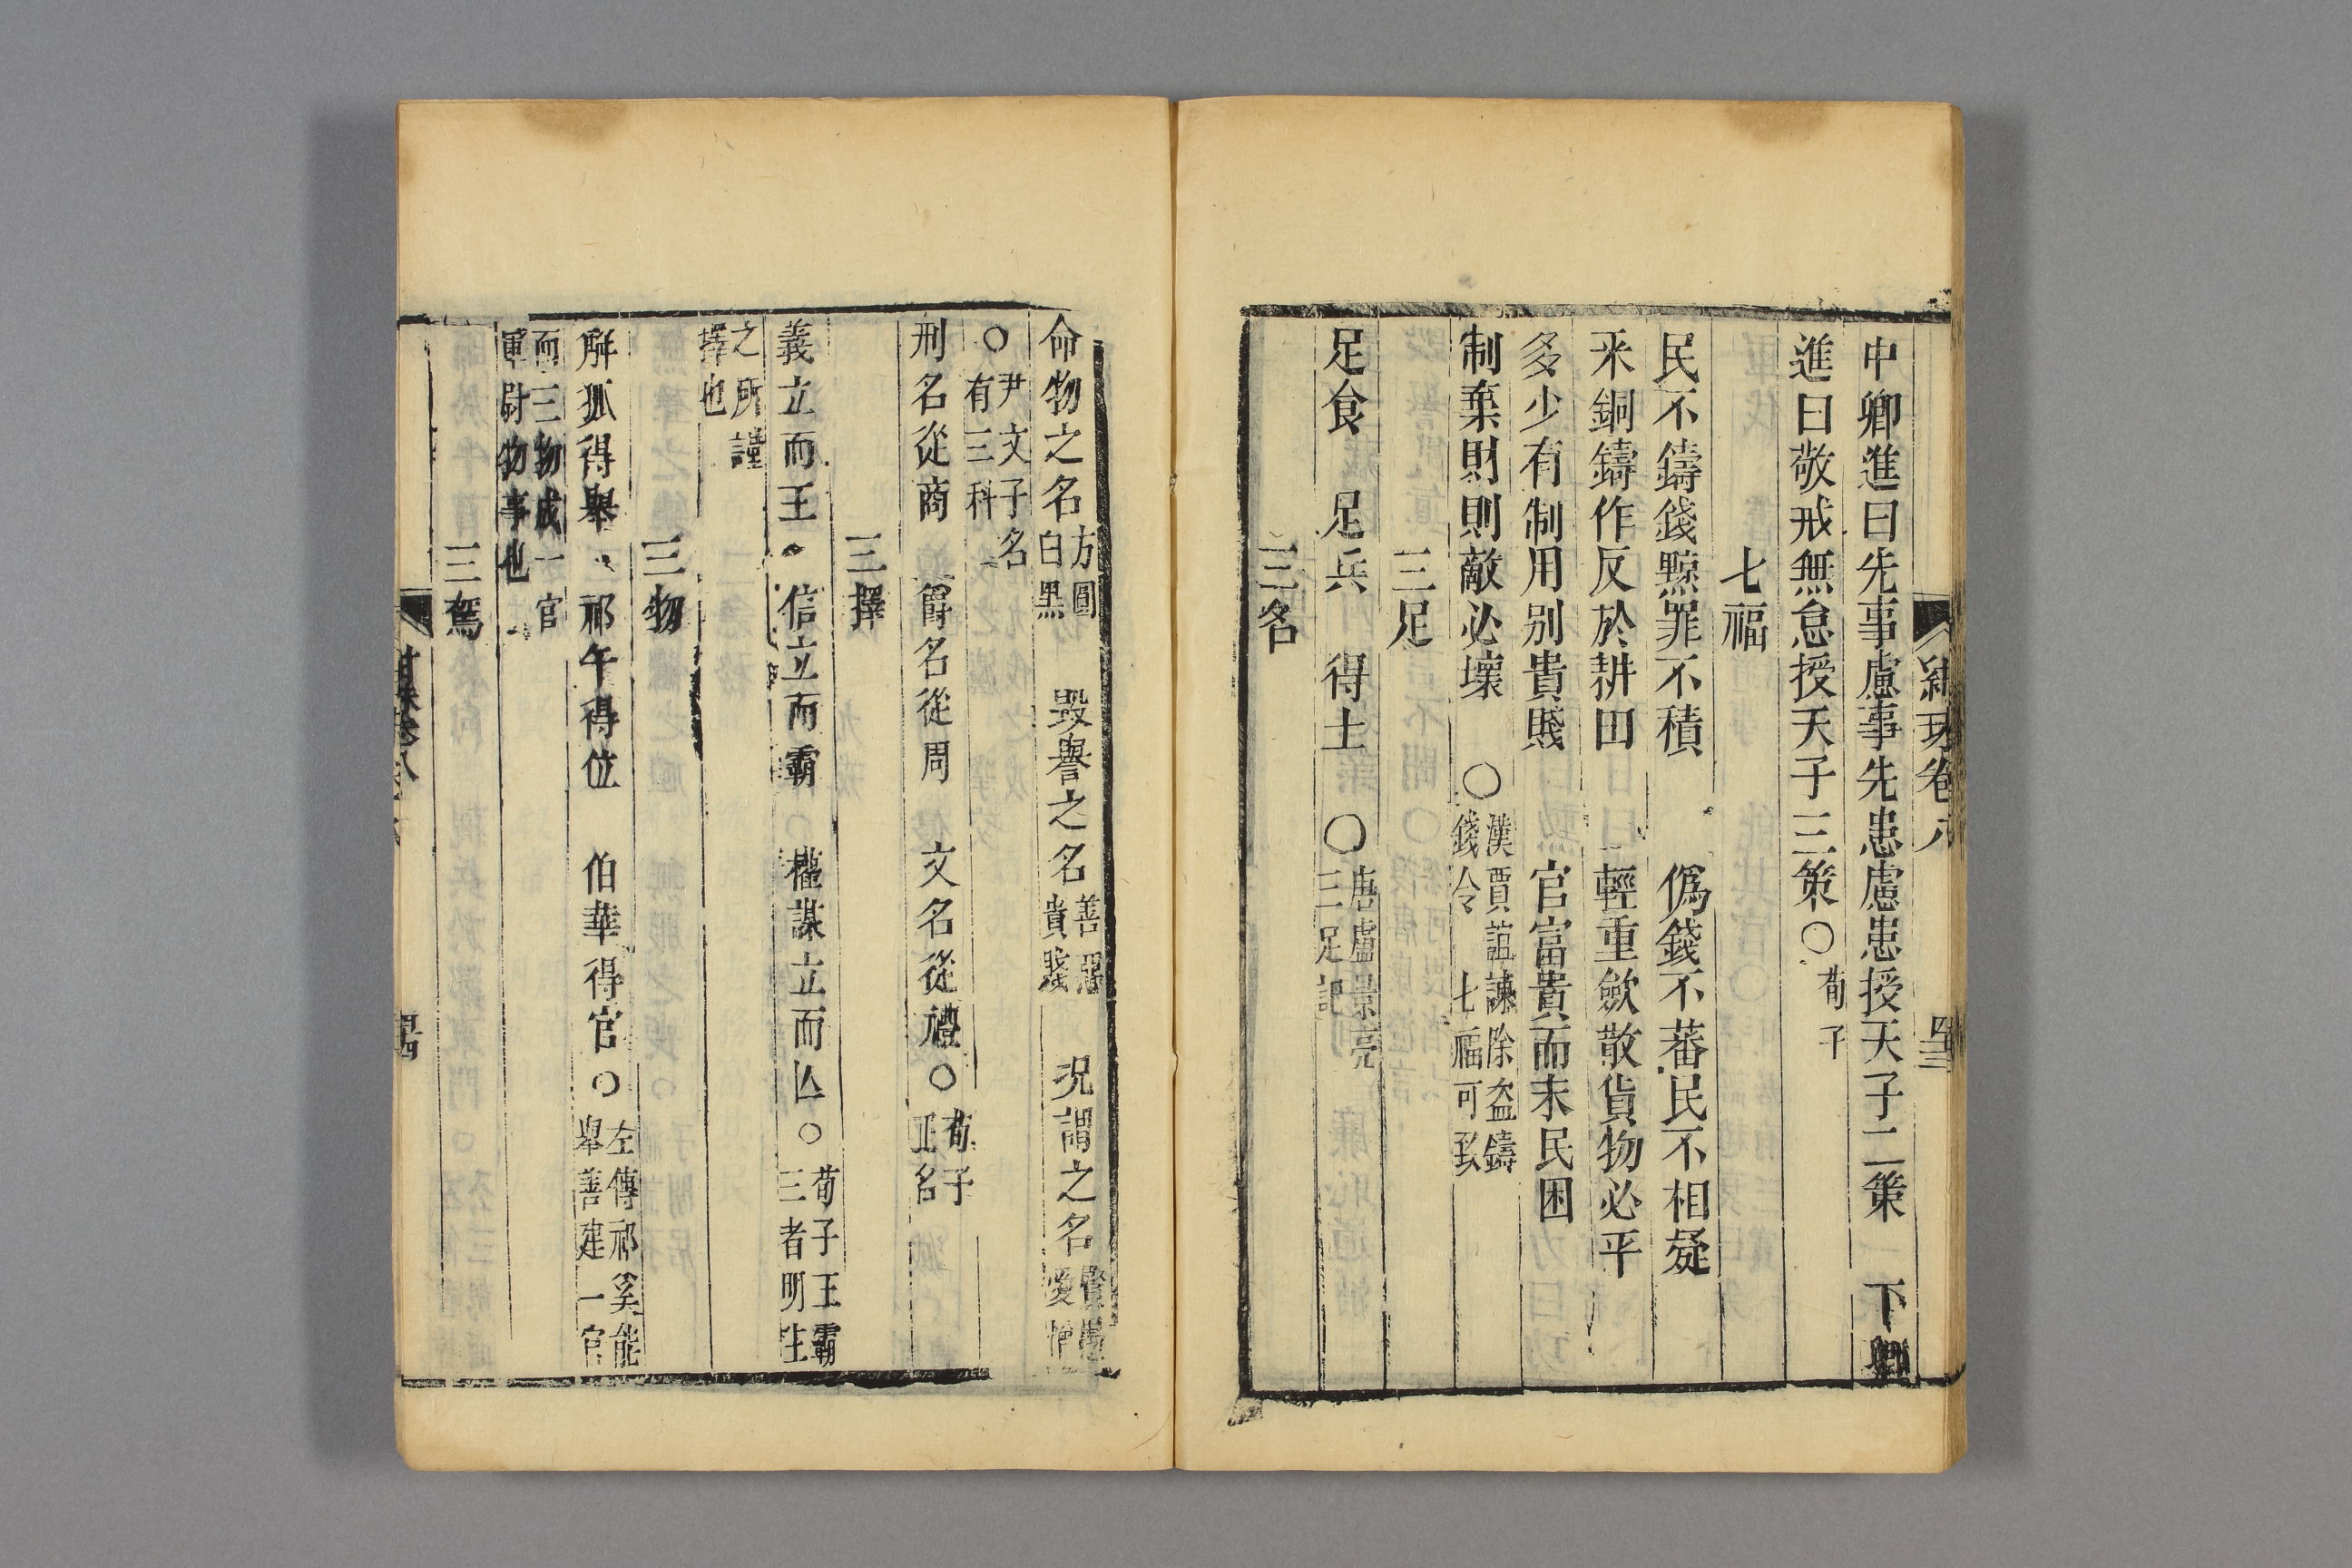 紺珠卷八
四三
中卿進曰先事慮事先患慮患授天子二策 下卿
進曰敬戒無怠授天子三策○荀子
七福
民不鑄錢黥罪不積 偽錢不蕃民不相疑
采銅鑄作反於耕田 輕重斂散貨物必平
多少有制用別貴賤 官富貴而末民困
制棄財則敵必壞 ○漢賈誼諫除盜鑄
錢令 七福可致
三足
足食 足兵 得士 ○唐盧景亮
三足記
三名
命物之名方圓
白黑 毀譽之名善惡
貴賤 況謂之名賢愚
愛憎
○尹文子名
有三科
刑名從商 爵名從周 文名從禮○荀子
正名
三擇
義立而王 信立而霸 權謀立而亾○荀子王霸
三者明主
之所謹
擇也
三物
解狐得舉 祁午得位 伯華得官○左傳祁奚能
舉善建一官
而三物成一官
軍尉物事也
三駕
卷八
四四